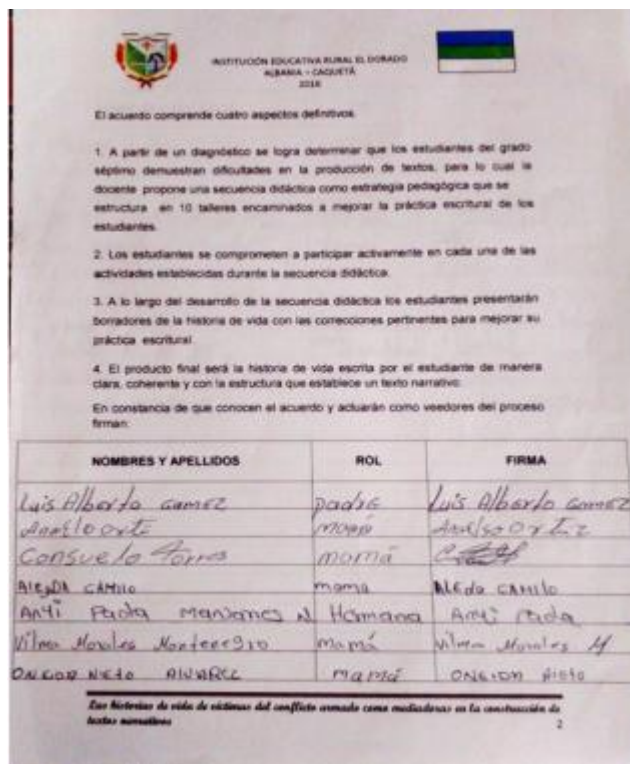 INSTITUCIÓN EDUCATIVA RURAL EL DORADO
ALBANIA – CAQUETÁ
2018
El acuerdo comprende cuatro aspectos definitivos
1. A partir de un diagnóstico se logra determinar que los estudiantes del grado
séptimo demuestran dificultades en la producción de textos, para lo cual la
docente propone una secuencia didáctica como estrategia pedagógica que se
estructura en 10 talleres encaminados a mejorar la práctica escritural de los
estudiantes.
2. Los estudiantes se comprometen a participar activamente en cada una de las
actividades establecidas durante la secuencia didáctica.
3. A lo largo del desarrollo de la secuencia didáctica los estudiantes presentarán
borradores de la historia de vida con las correcciones pertinentes para mejorar su
práctica escritural.
4. El producto final será la historia de vida escrita por el estudiante de manera
clara, coherente y con la estructura que establece un texto narrativo.
En constancia de que conocen el acuerdo y actuarán como veedores del proceso
firman:
NOMBRES Y APELLIDOS ROL FIRMA
Luis Alberto Gamez padre Luis Alberto Gomez
mamá Ortiz
Consuelo Torres mamá
CAMILO mama CAMILO
Hermana
Vilma Morales Montenegro mamá Vilma Morales M
Nieto ALVAREZ mamá
Las historias de vida de víctimas del conflicto armado como mediadoras en la construcción de
textos narrativos
2